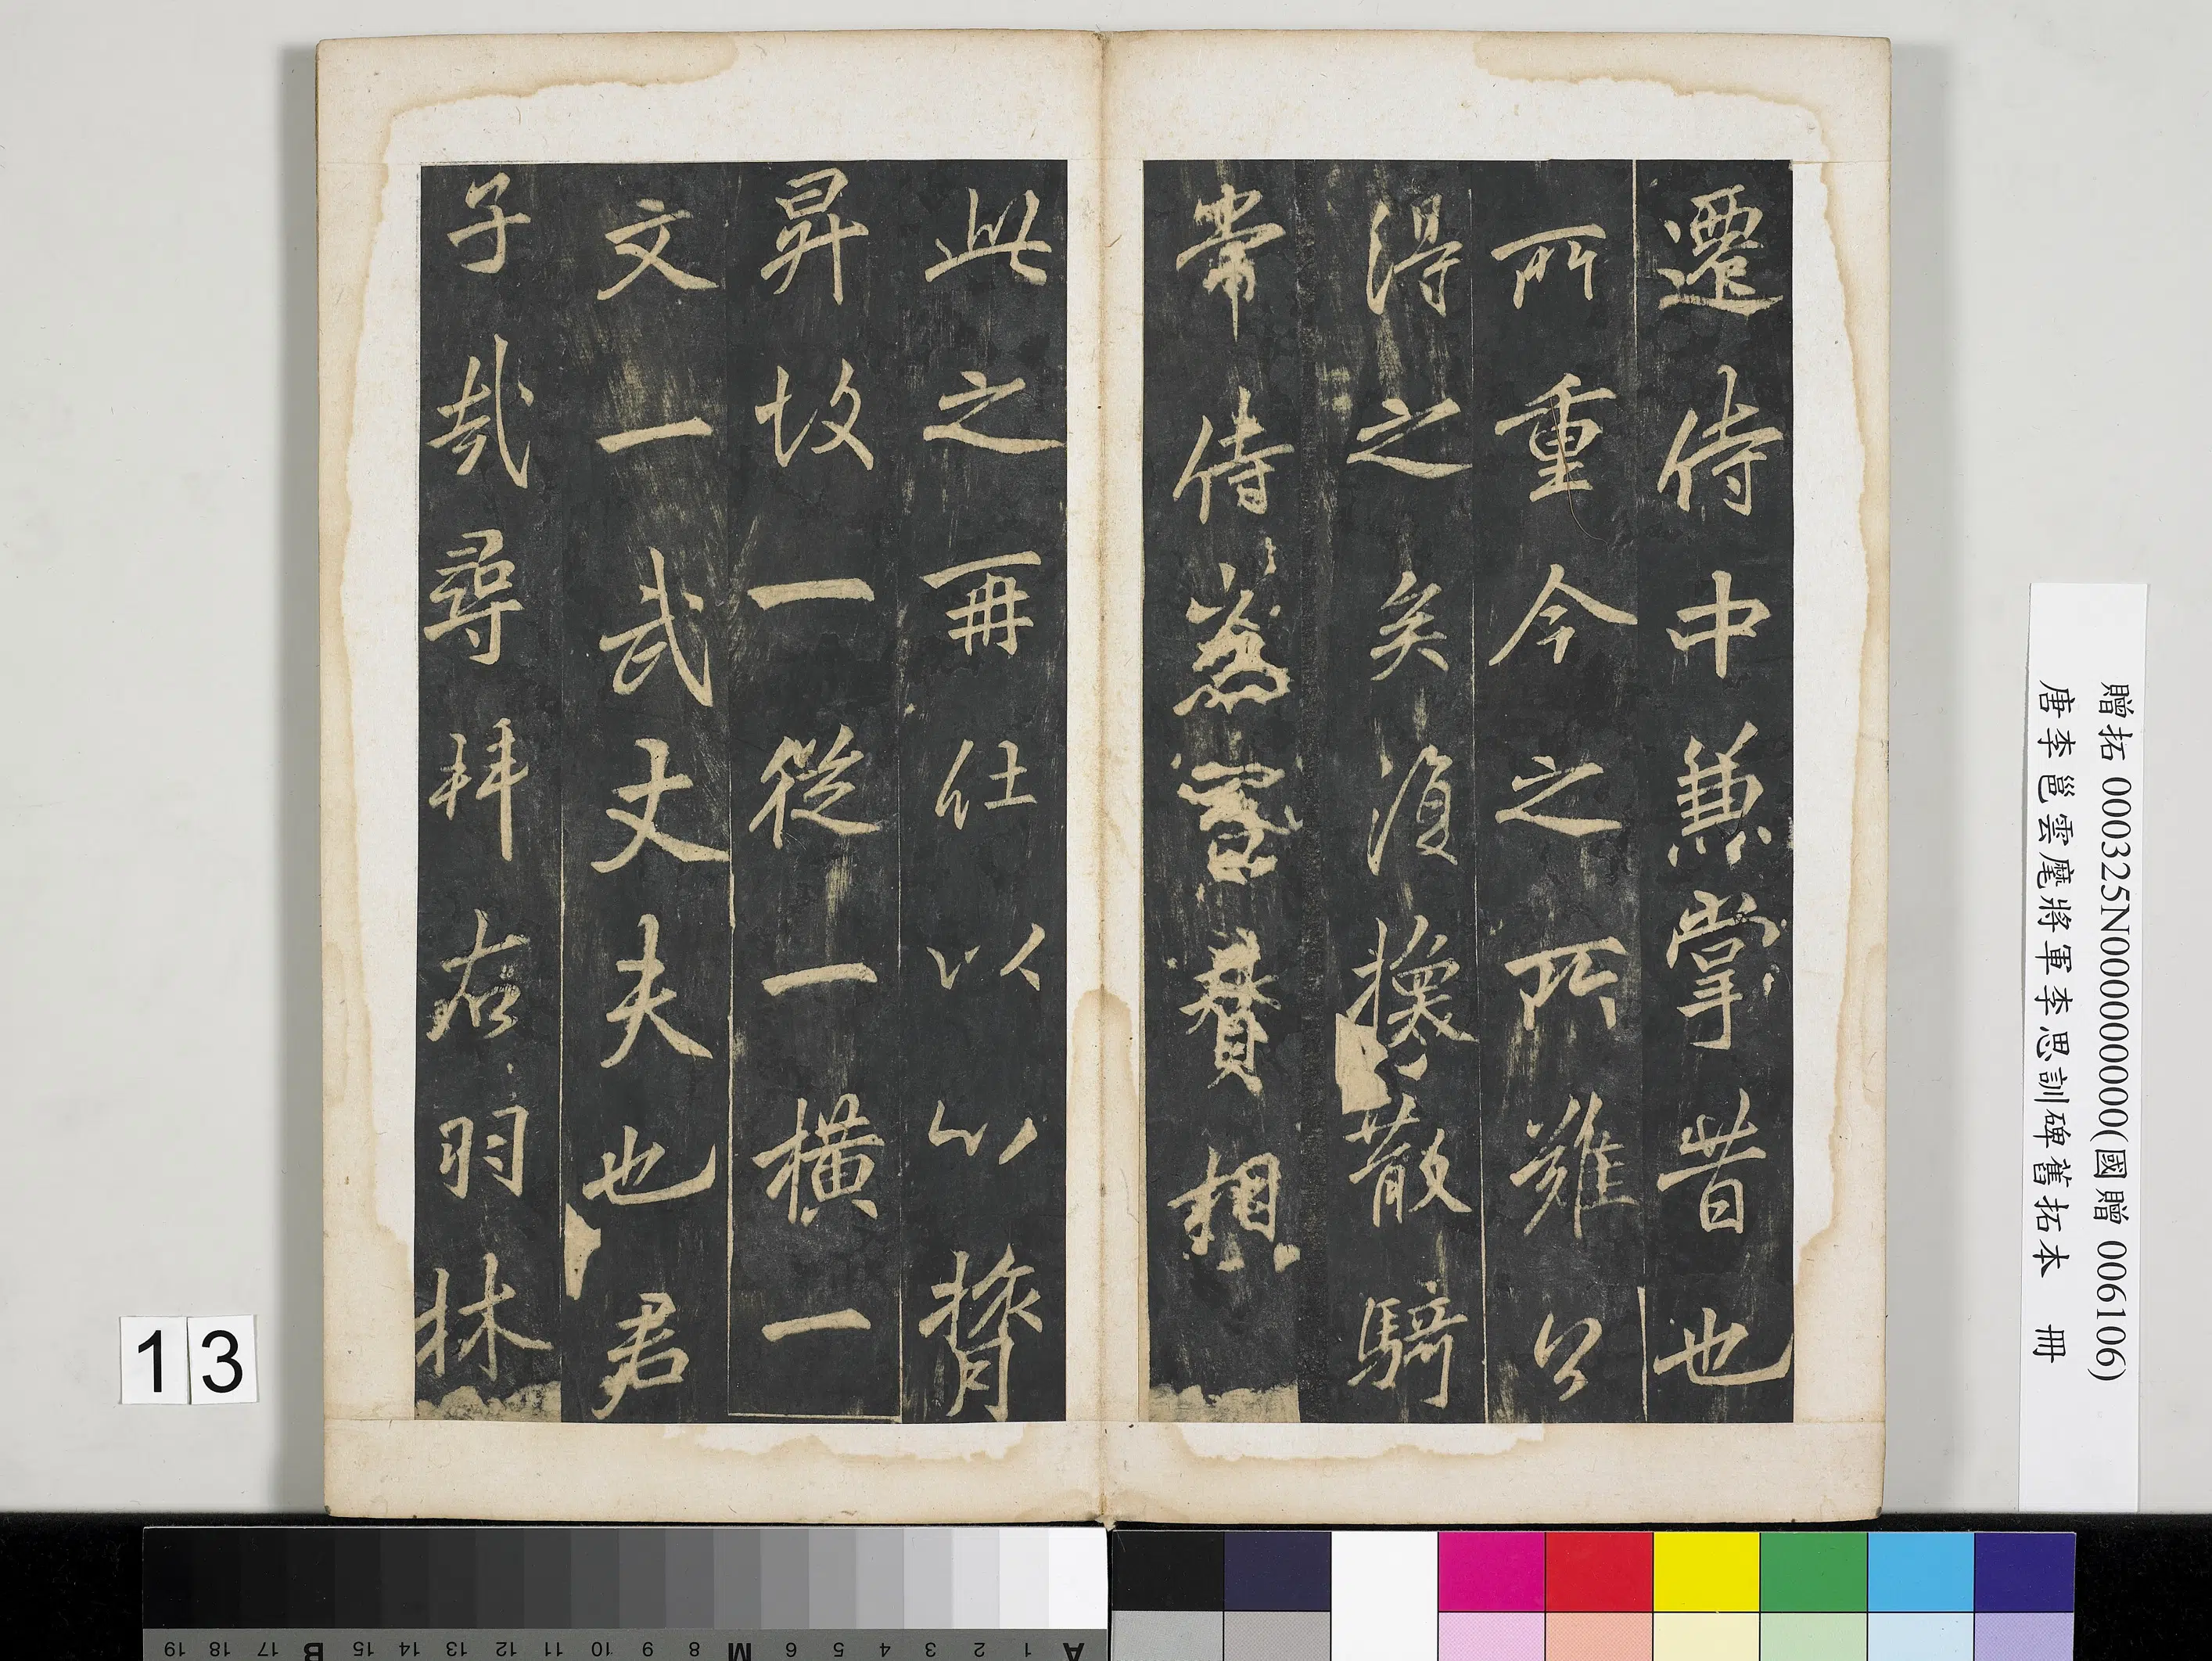 遷侍中兼掌昔也
所重今之所難公
得之矣復換散騎
常侍容賛相
此之再仕以心膂
昇故一從一橫一
文一武丈夫也君
子哉尋拜右羽林
贈拓 000325N000000000(國贈 006106)
唐李邕雲麾將軍李思訓碑舊拓本　冊
13
A 1 2 3 4 5 6 M 8 9 10 11 12 13 14 15 B 17 18 19